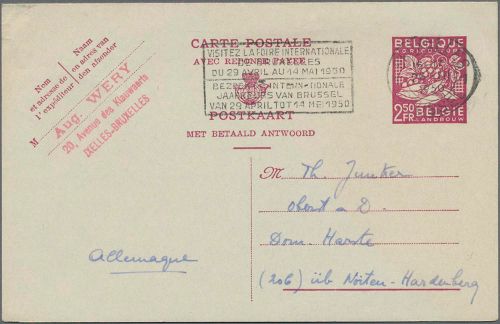 Nom
et adresse de
l'expéditeur
Naam
en adres van
den afzender
M
Aug. WERY
20, Avenue des Klauwaerts
IXELLES-BRUXELLES
CARTE POSTALE
AVEC REPONSE PAYEE
VISITEZ LA FOIRE INTERNATIONALE
DE BRUXELLES
DU 29 AVRIL AU 14 MAI 1950
BEZOEKT INTERNATIONALE
JAARBEURS VAN BRUSSEL
VAN 29 APRIL TOT 14 MEI 1950
POSTKAART
MET BETAALD ANTWOORD
BELGIQUE
AGRICULTURE
2,50
FR.
BELGIE
LANDBOUW
M Th. Junker
Oberst a. D.
Dom. Harste
(20b) üb Nörten-Hardenberg
Allemagne